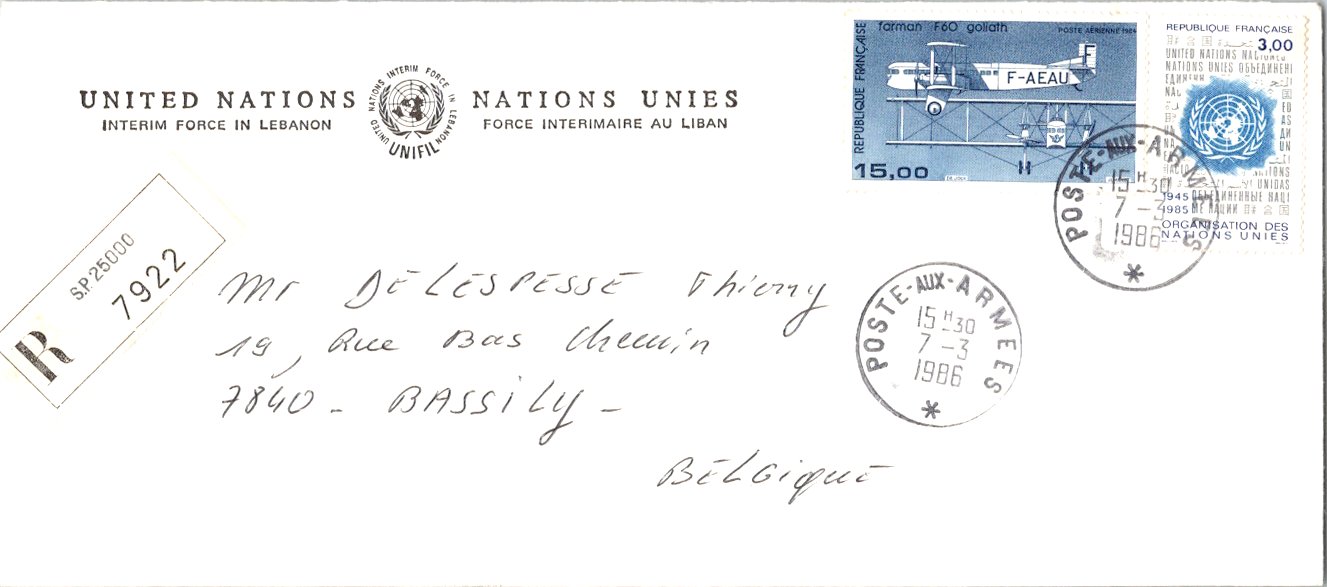 UNITED NATIONS
INTERIM FORCE IN LEBANON
UNITED NATIONS INTERIM FORCE IN LEBANON
UNIFIL
NATIONS UNIES
FORCE INTERIMAIRE AU LIBAN
farman F60 goliath
POSTE AÉRIENNE 1984
RÉPUBLIQUE FRANÇAISE
F
F-AEAU
15,00
REPUBLIQUE FRANÇAISE
3,00
UNITED NATIONS
NATIONS UNIES ОБЪЕДИНЕН
1945
1985
ORGANISATION DES
NATIONS UNIES
POSTE-AUX-ARMEES
15H-30
7-3
1986
*
R
S.P. 25000
7922
Mr DELESPESSE Thierry
19, Rue Bas Chemin
7840 - BASSILY -
BELGIQUE
POSTE-AUX-ARMEES
15H-30
7-3
1986
*